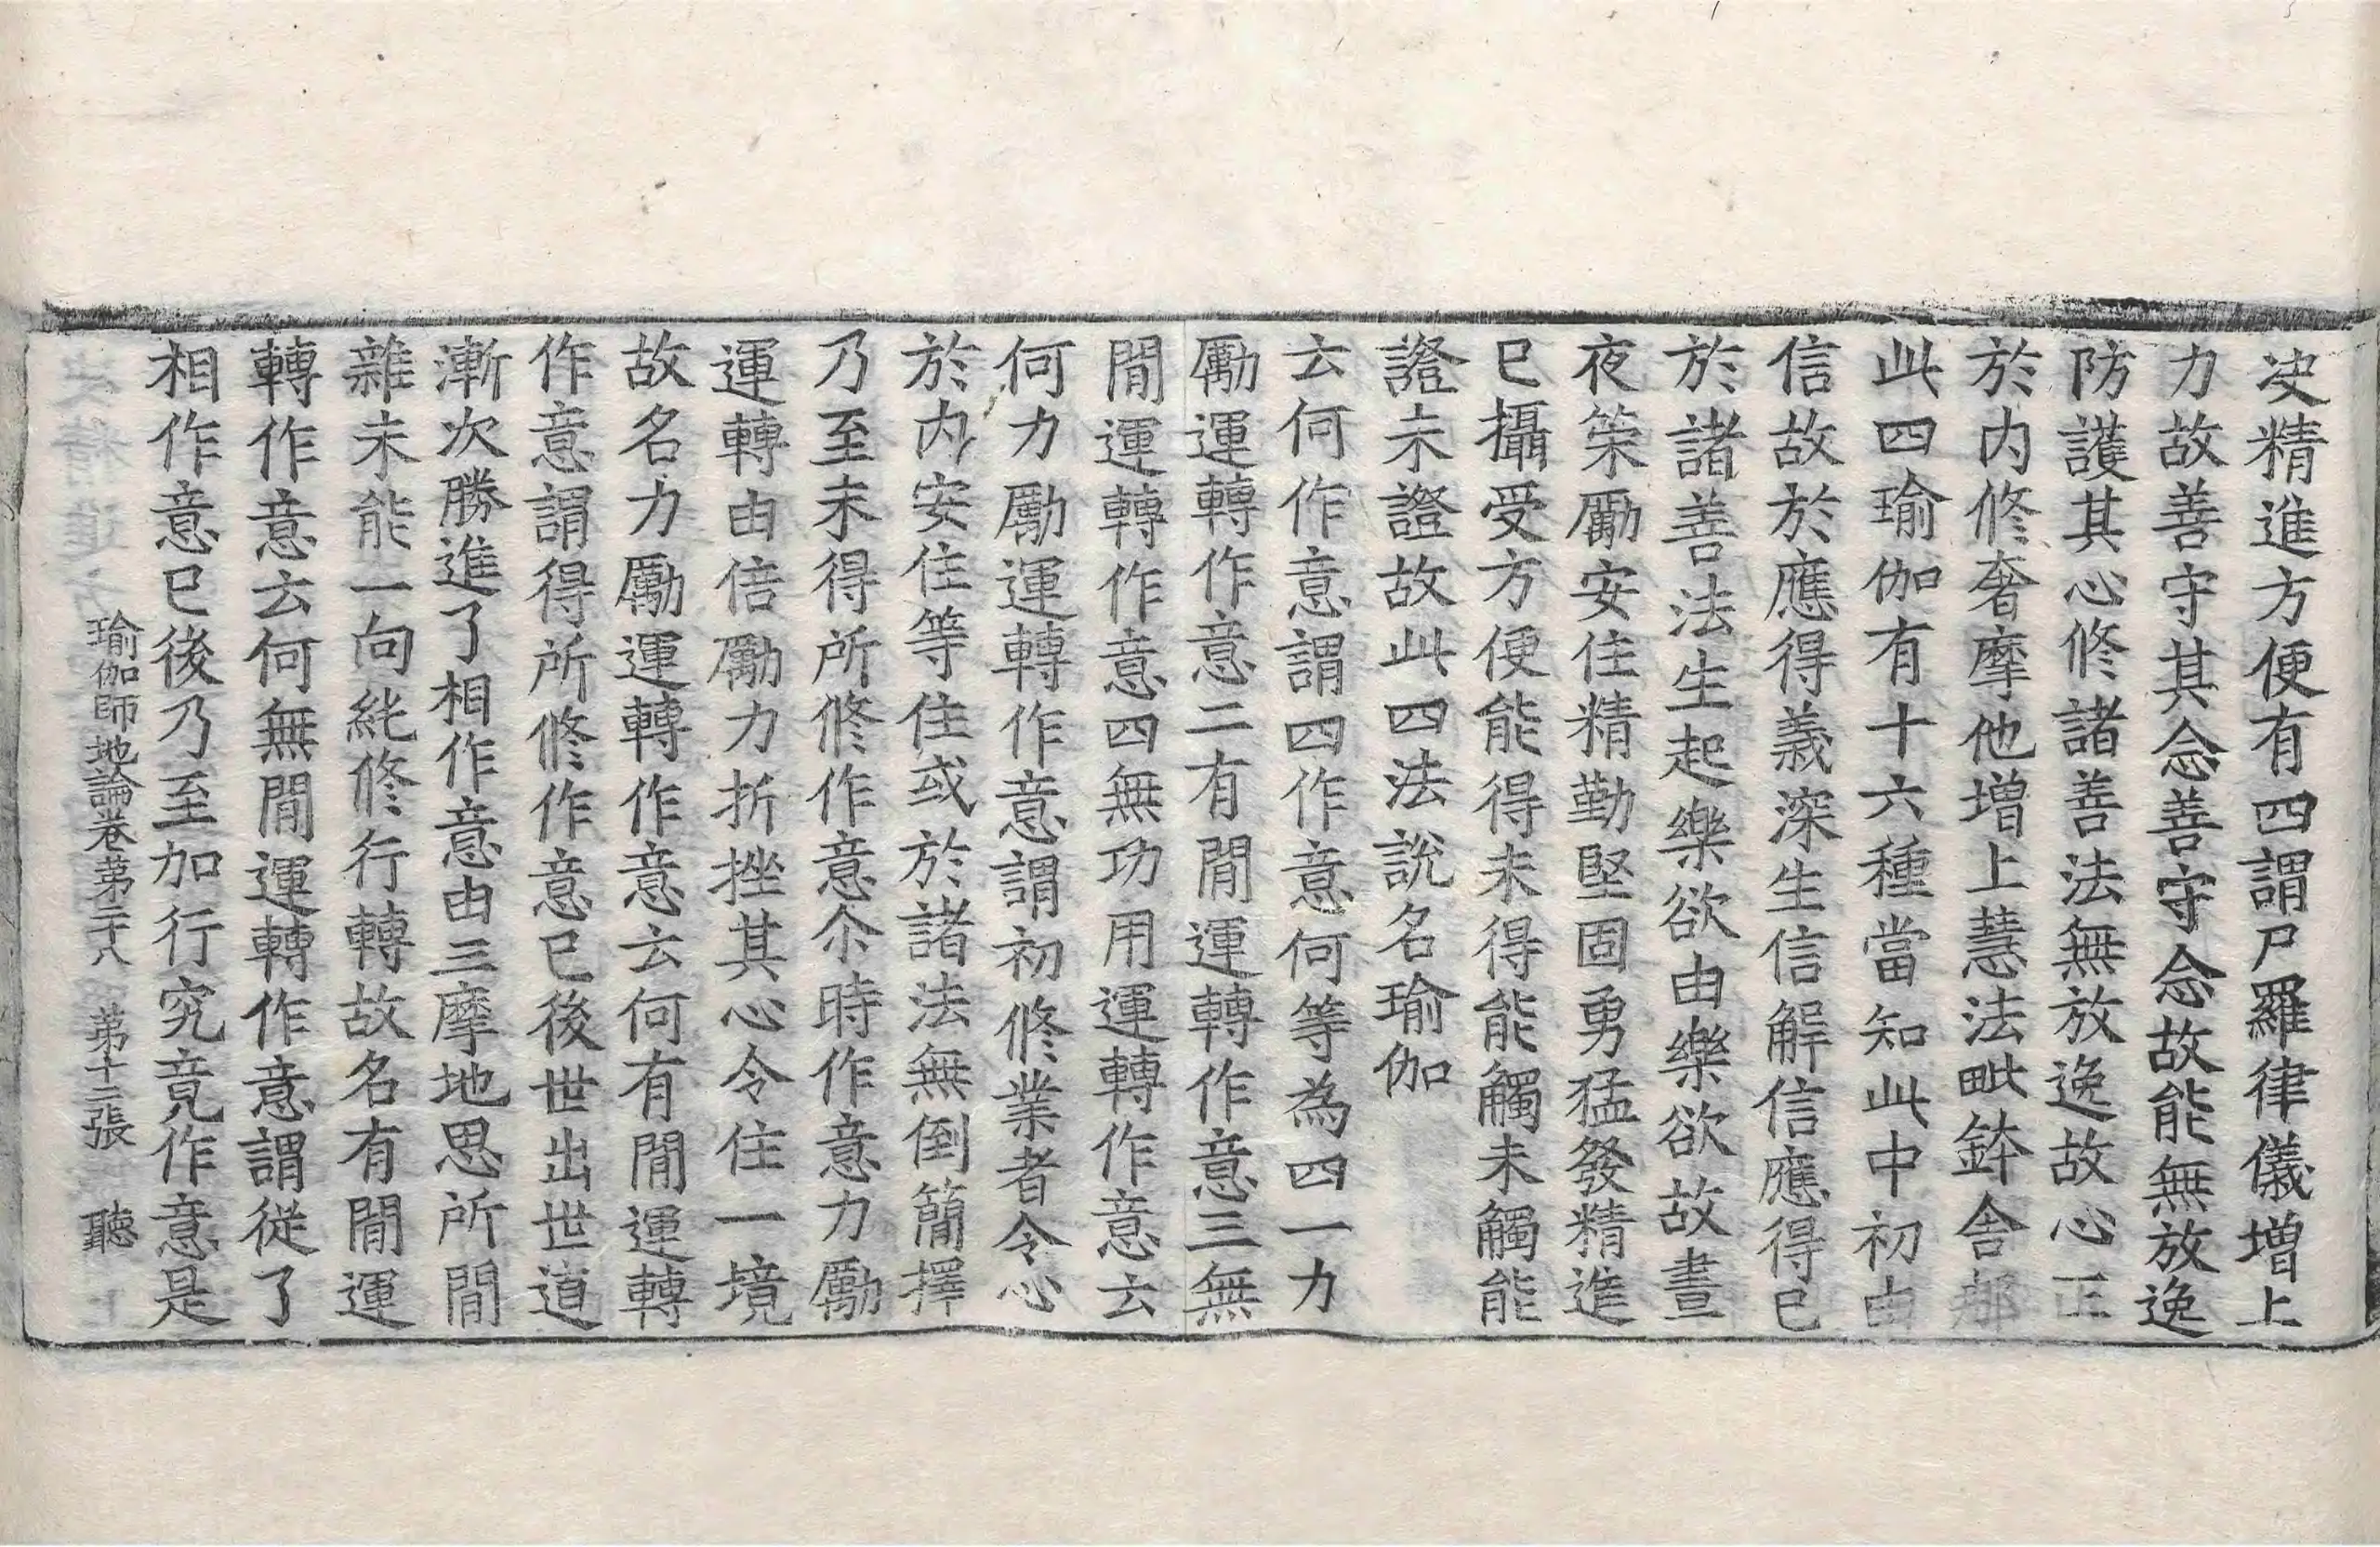 决精進方便有四謂尸羅律儀增上
力故善守其念善守念故能無放逸
防護其心修諸善法無放逸故心正
於内修奢摩他增上慧法毗鉢舍那
此四瑜伽有十六種當知此中初由
信故於應得義深生信解信應得已
於諸善法生起樂欲由樂欲故晝
夜策勵安住精勤堅固勇猛發精進
已攝受方便能得未得能觸未觸能
證未證故此四法說名瑜伽
云何作意謂四作意何等為四一力
勵運轉作意二有間運轉作意三無
間運轉作意四無功用運轉作意云
何力勵運轉作意謂初修業者令心
於内安住等住或於諸法無倒簡擇
乃至未得所修作意尒時作意力勵
運轉由倍勵力折挫其心令住一境
故名力勵運轉作意云何有間運轉
作意謂得所修作意已後世出世道
漸次勝進了相作意由三摩地思所間
雜未能一向純修行轉故名有間運
轉作意云何無間運轉作意謂從了
相作意已後乃至加行究竟作意是
瑜伽師地論卷第二十八 第十二張 聽